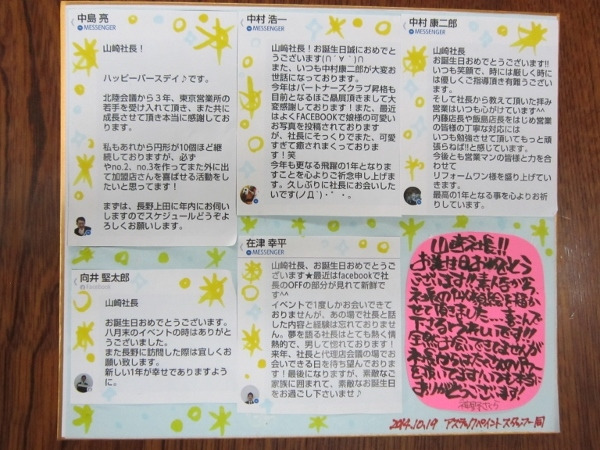 中島 亮
MESSENGER
山崎社長！
ハッピーバースデイ♪です。
北陸会議から３年、東京営業所の
若手を受け入れて頂き、また共に
成長させて頂き本当に感謝してお
ります。
私もあれから円形が10個ほど継
続しておりますが、必ず
やno.2、no.3を作ってまた外に出
て加盟店さんを喜ばせる活動をし
たいと思ってます！
まずは、長野上田に年内にお伺い
しますのでスケジュールどうぞよ
ろしくお願いします。
中村 浩一
MESSENGER
山崎社長！お誕生日誠におめでと
うございます(∩´∀｀)∩
また、いつも中村康二郎が大変お
世話になっております。
今年はパートナーズクラブ昇格も
目前となるほご贔屓頂きまして大
変感謝しております！また、最近
はよくFACEBOOKで娘様の可愛い
お写真を投稿されておりました
が、社長にそっくりでまた、可愛
すぎて癒されまくっておりま
す！笑
今年も更なる飛躍の1年となりま
すことを心よりご祈念申し上げま
す。久しぶりに社長にお会いした
いです(ノД｀)・゜・。
中村 康二郎
MESSENGER
山崎社長
お誕生日おめでとうございます!!
いつも笑顔で、時には厳しく時に
は優しくご指導頂き有難うござい
ます。
そして社長から教えて頂いた拝み
営業はいつも心がけています^^
内藤店長や飯島店長をはじめ営業
の皆様の丁寧な対応には
いつも勉強させて頂いてもっと頑
張らねば!!と感じています。
今後とも営業マンの皆様と力を合
わせて
リフォームワン様を盛り上げてい
きます。
最高の1年となる事を心よりお祈り
しています。
向井 堅太郎
Facebook
山崎社長
お誕生日おめでとうございます。
八月末のイベントの時はありがと
うございました。
また長野に訪問した際は宜しくお
願い致します。
新しい1年が幸せでありますよう
に。
在津 幸平
MESSENGER
山崎社長、お誕生日おめでとうご
ざいます★最近はfacebookで社
長のOFFの部分が見れて新鮮です
^^
イベントで1度しかお会いできて
おりませんが、あの場で社長と話
した内容と経験は忘れておりませ
ん。夢を語る社長はとても熱く情
熱的で、男して惚れております！
来年、社長と代理店会議の場でお
会いできる日を待ち望んでおりま
す！最後になりますが、素敵なご
家族に囲まれて、素敵なお誕生日
をお過ごし下さいませ♪
山崎社長!!
お誕生日おめでとう
ございます!!
2014.10.19 アステックペイント スタッフ一同